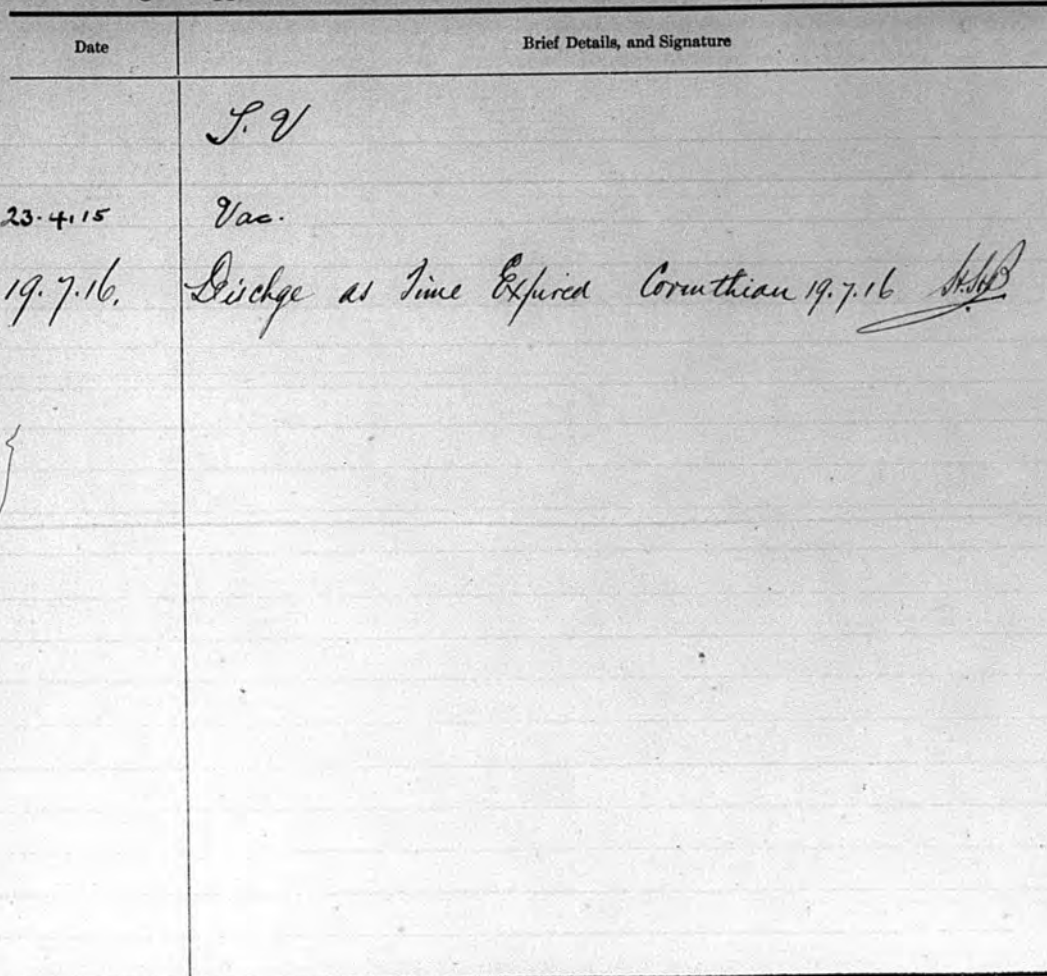 Date Brief Details, and Signature
S. V
23.4.15 Vac.
19.7.16. Dischge as Time Expired Corinthian 19.7.16